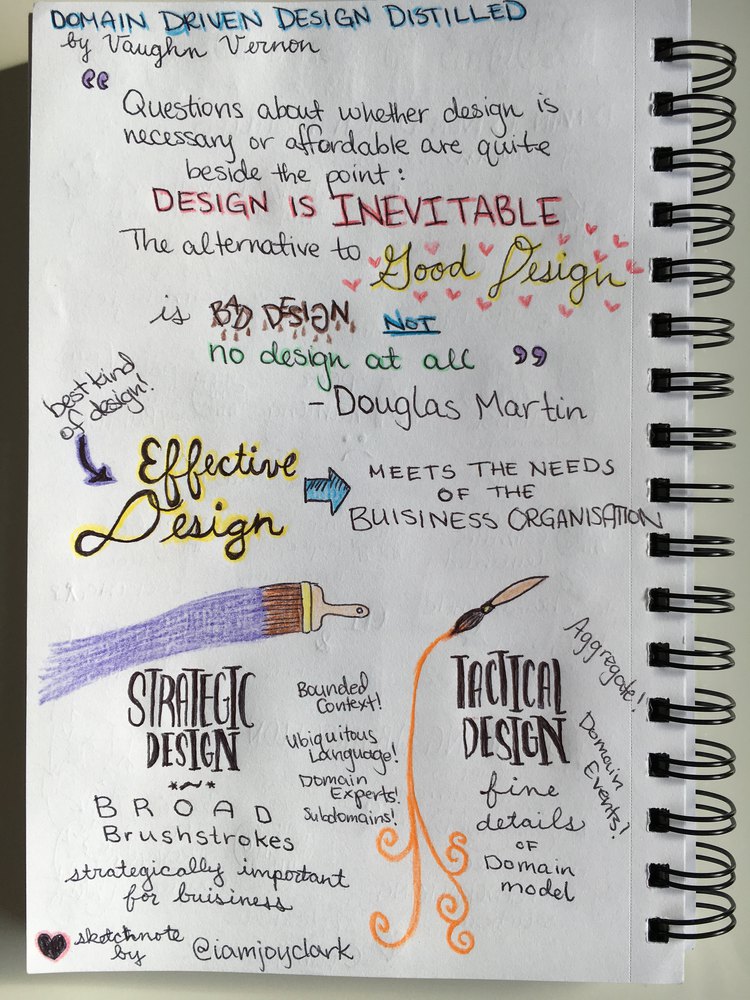 DOMAIN DRIVEN DESIGN DISTILLED
by Vaughn Vernon
“
Questions about whether design is
necessary or affordable are quite
beside the point:
DESIGN IS INEVITABLE
The alternative to Good Design
is BAD DESIGN, NOT
no design at all ”
- Douglas Martin
best kind
of design!
Effective
Design
MEETS THE NEEDS
OF THE
BUISINESS ORGANISATION
STRATEGIC
DESIGN
*~*
BROAD
Brushstrokes
strategically important
for buisiness
Bounded
Context!
Ubiquitous
Language!
Domain
Experts!
Subdomains!
TACTICAL
DESIGN
fine
details
OF
Domain
model
Aggregate!
Domain
Events!
sketchnote
by @iamjoyclark